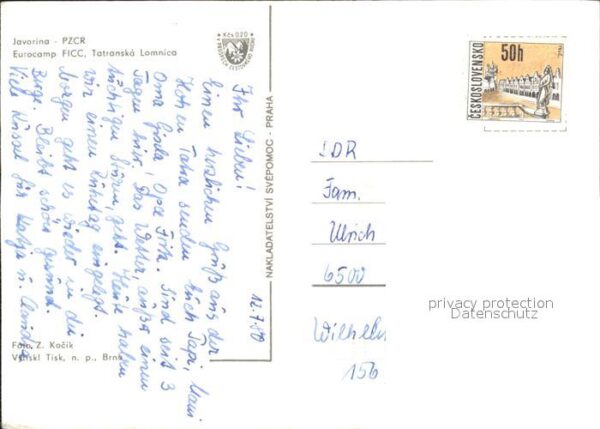 Javorina - PZCR
Eurocamp FICC, Tatranská Lomnica
Kčs 0,20
12.7.80
Ihr Lieben!
Einen herzlichen Gruß aus der
Hohen Tatra senden Euch Papi, Mami
Oma Gerda, Opa Fritz. Sind seit 3
Tagen hier. Das Wetter, außer einem
tüchtigen Sturm, geht. Heute haben
wir einen Ruhetag eingelegt.
Morgen geht es wieder in die
Berge. Bleibt schön gesund.
Viele Küssel für Katja u.
Foto Z. Kačík
Východ. Tisk, n. p., Brno
NAKLADATELSTVÍ SVÉPOMOC - PRAHA
ČESKOSLOVENSKO
50h
DDR
Fam.
Ulrich
6500
Wilhelm
156
privacy protection
Datenschutz